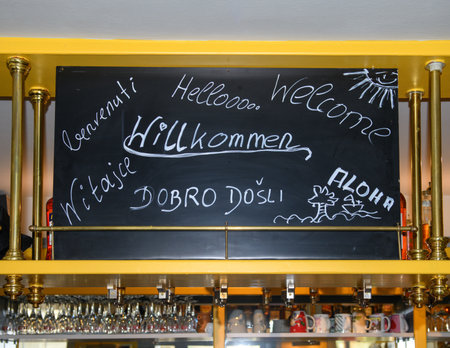 benvenuti
Helloooo..
Welcome
Willkommen
Witajce
DOBRO DOŠLI
ALOHA